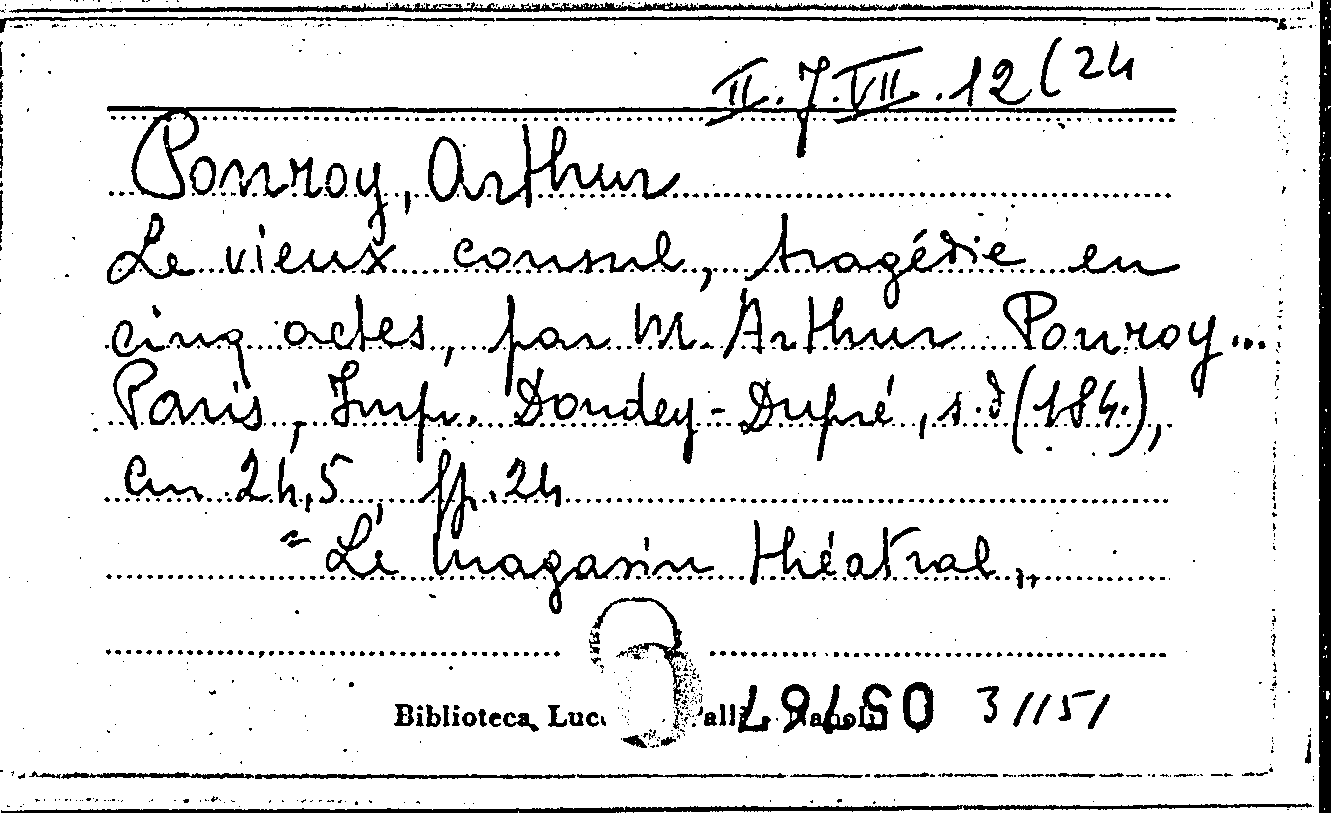 II.7.VII.12(24
Ponroy, Arthur
Le vieux consul, tragédie en
cinq actes, par M. Arthur Ponroy...
Paris, Impr. Dondey-Dupré, s.d(184.),
cm 24,5, pp.24
"Le magasin théatral„
Biblioteca Luc 3/1151